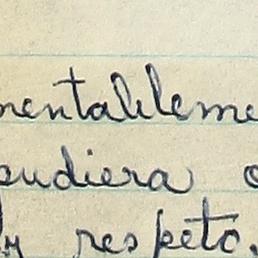 mentableme
pudiera
y respeto.